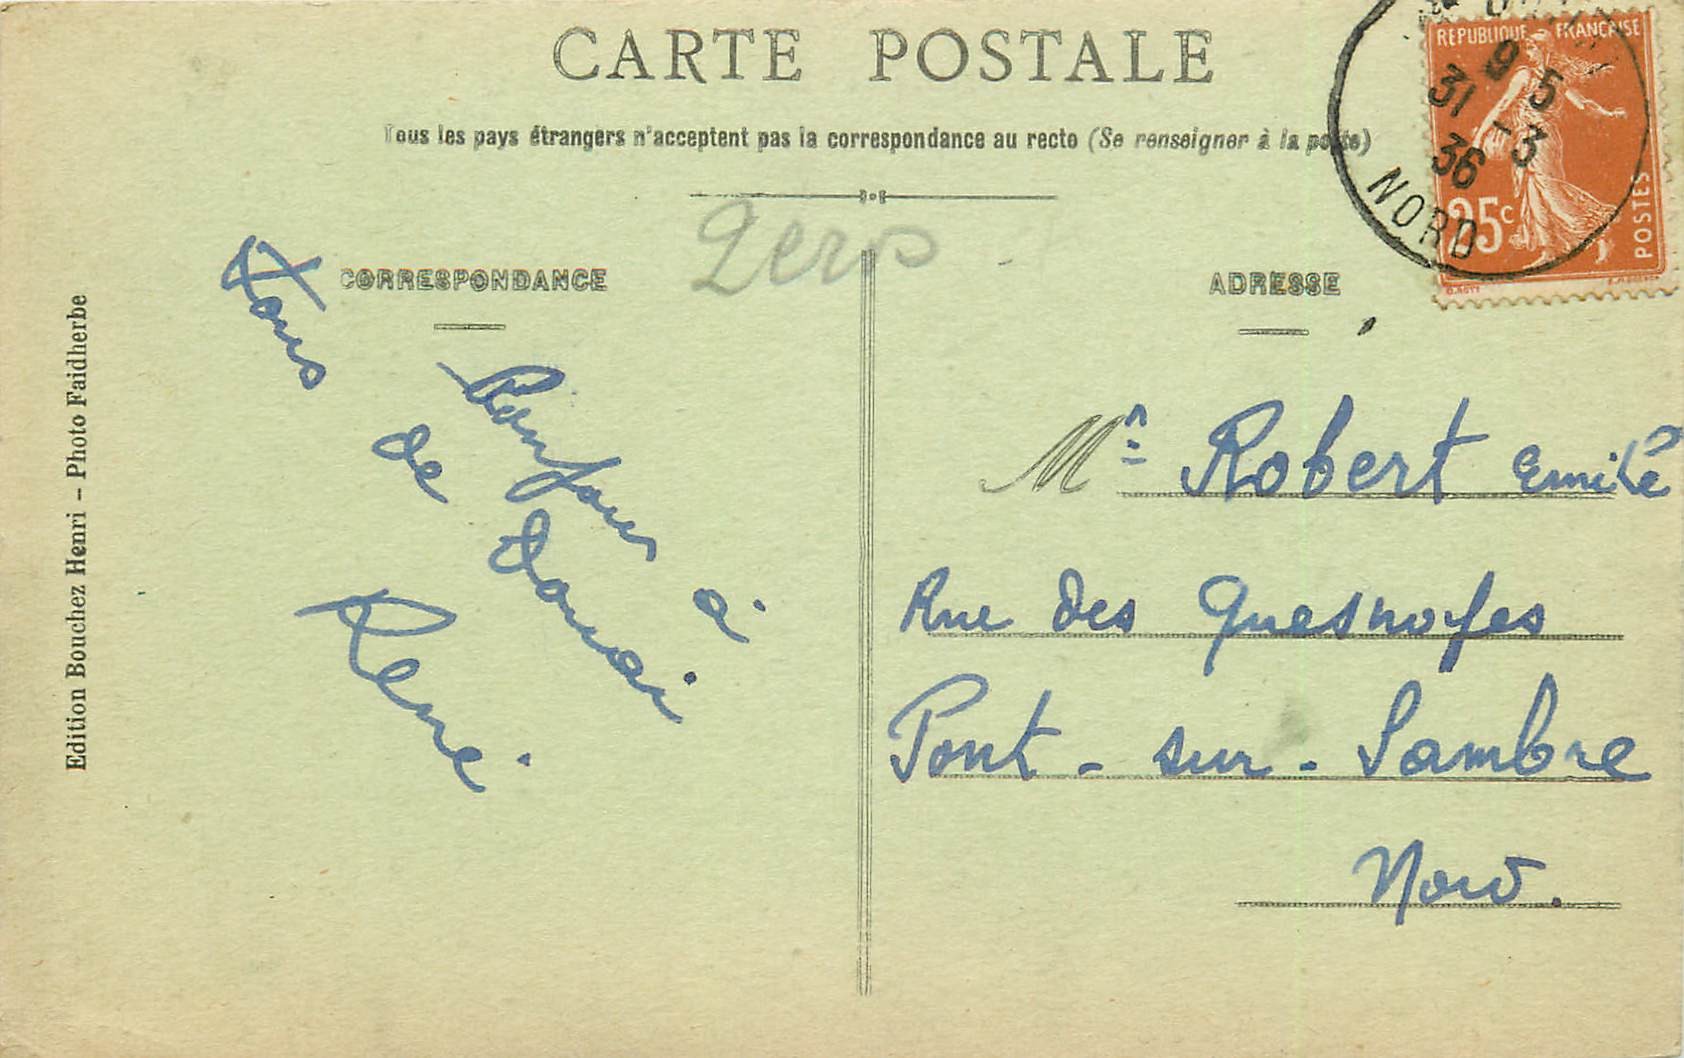 CARTE POSTALE
Tous les pays étrangers n'acceptent pas la correspondance au recto (Se renseigner à la poste)
REPUBLIQUE FRANÇAISE
9 5
31 -3
36
NORD
25c
POSTES
CORRESPONDANCE
ADRESSE
Bonjour à
tous
de Douai
René
Mr Robert Emile
Rue des Quesnoyes
Pont-sur-Sambre
Nord.
Edition Bouchez Henri - Photo Faidherbe